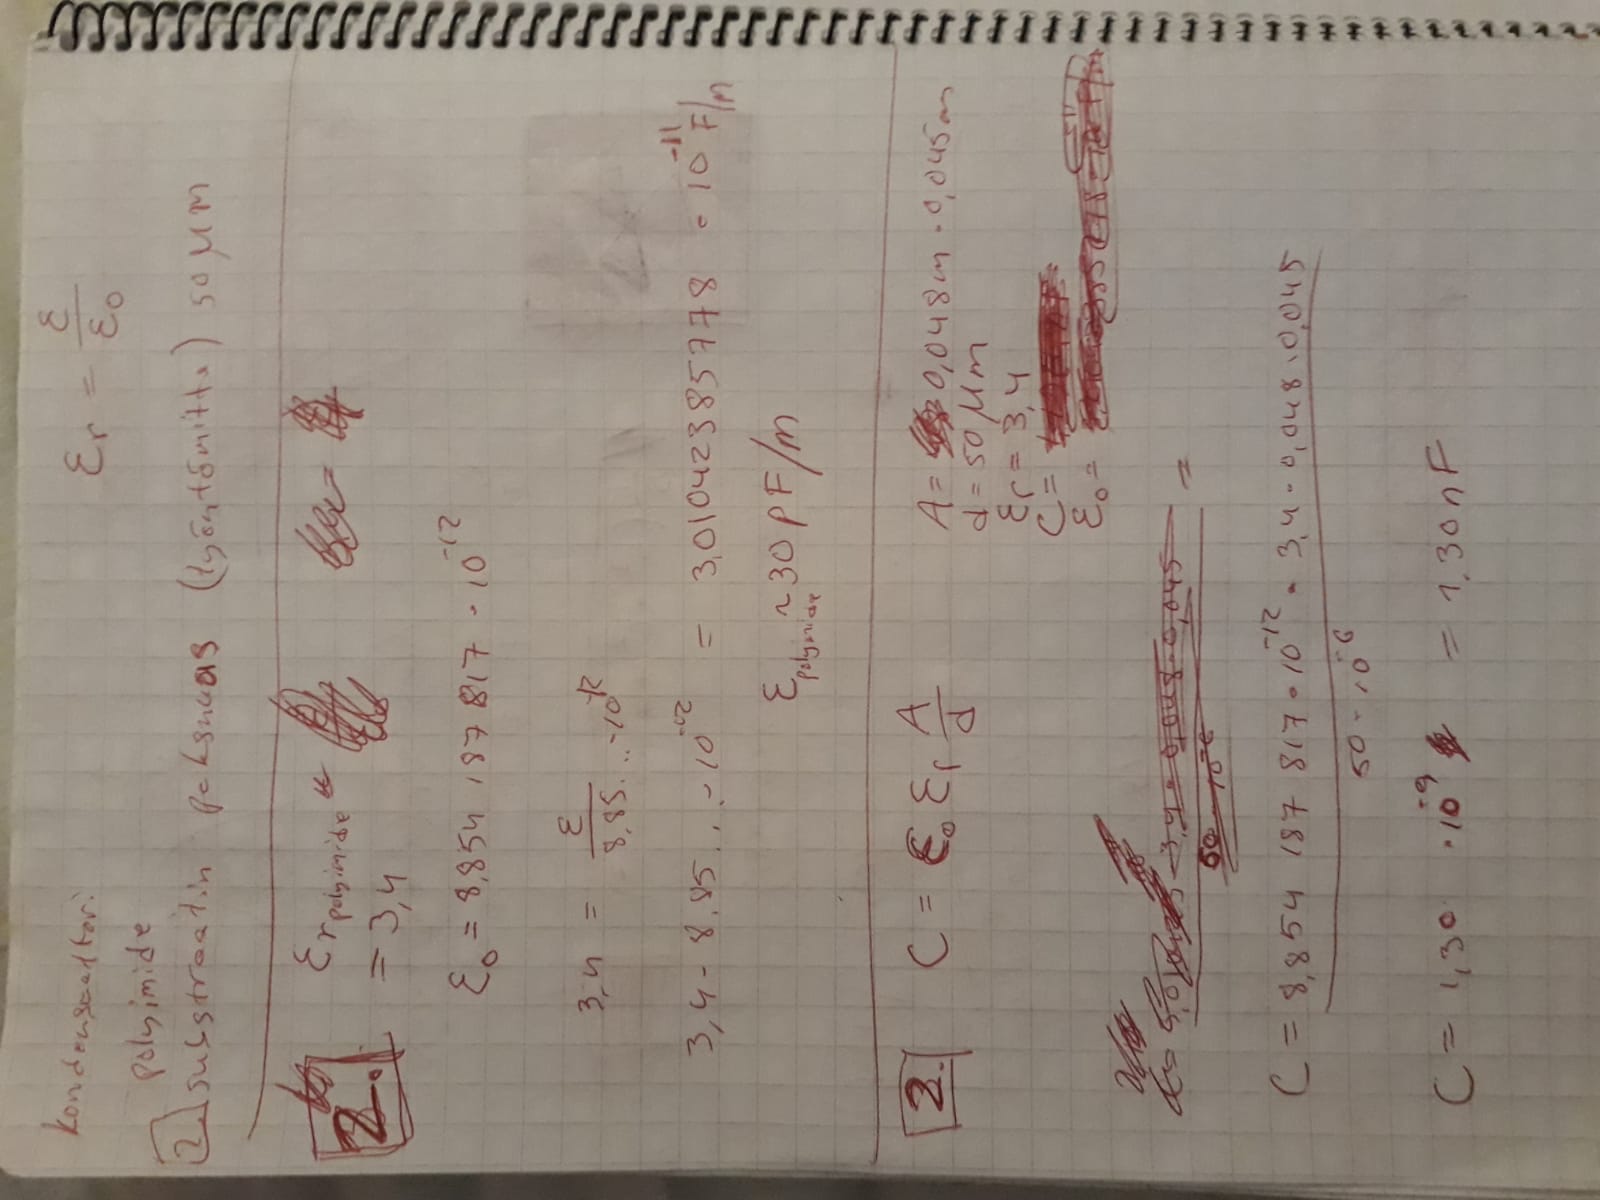 Kondensaattori
εr = ε / ε0
polyimide
2. substraatin paksuus (työntömitta) 50 µm
2. εr polyimide
= 3,4
ε0 = 8,854 187 817 · 10^-12
3,4 = ε / 8,85... · 10^-12
3,4 · 8,85... · 10^-12 = 3,01042385778 · 10^-11 F/m
ε polyimide ~ 30 pF/m
2. C = ε0 εr A / d
A = 0,048m · 0,045m
d = 50 µm
εr = 3,4
C =
ε0 =
3,4 · 0,048 · 0,045 =
50 · 10^-6
C = 8,854 187 817 · 10^-12 · 3,4 · 0,048 · 0,045
50 · 10^-6
C = 1,30 · 10^-9 = 1,30 nF